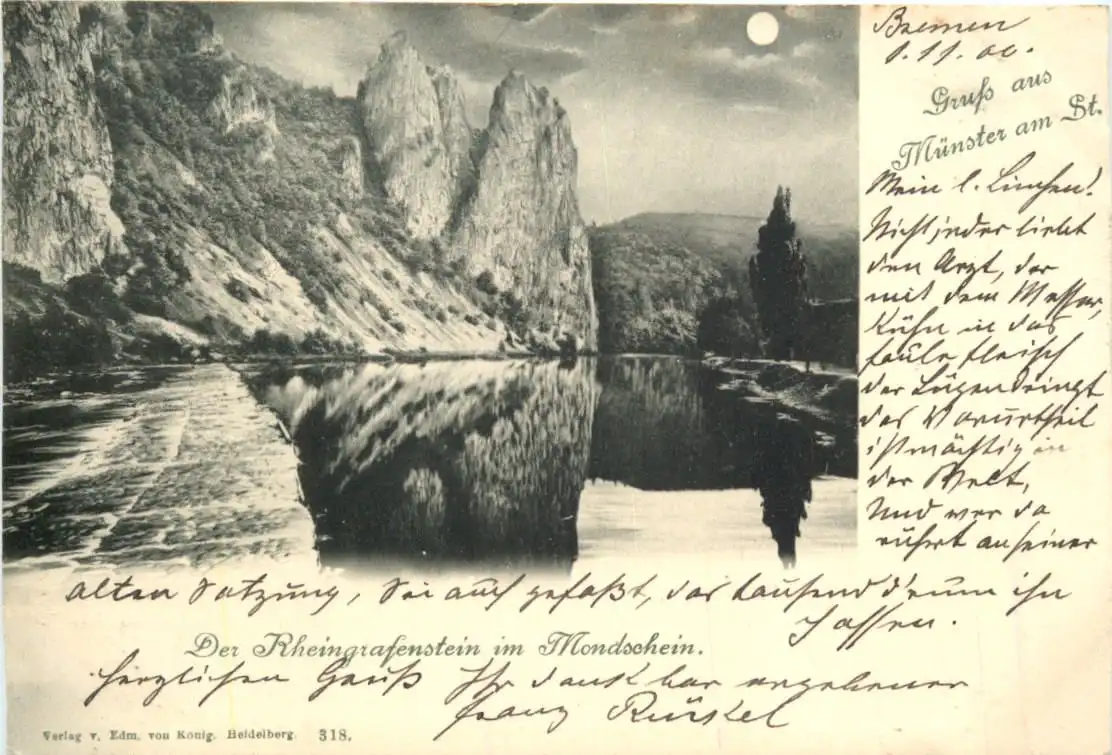 Bremen
1.11.00.
Gruß aus
Münster am St.
Mein l. Linchen!
Nicht jeder liebt
den Arzt, der
mit dem Messer,
Kühn in das
faule Fleisch
der Lügen dringt
das Vorurtheil
ist mächtig in
der Welt,
Und wer da
rührt an seiner
alten Satzung, Sei auch gefaßt, das tausend d'rum ihn
hassen.
Der Rheingrafenstein im Mondschein.
herzlichen Gruß Ihr dankbar ergebener
Franz
Verlag v. Edm. von König. Heidelberg. 318.